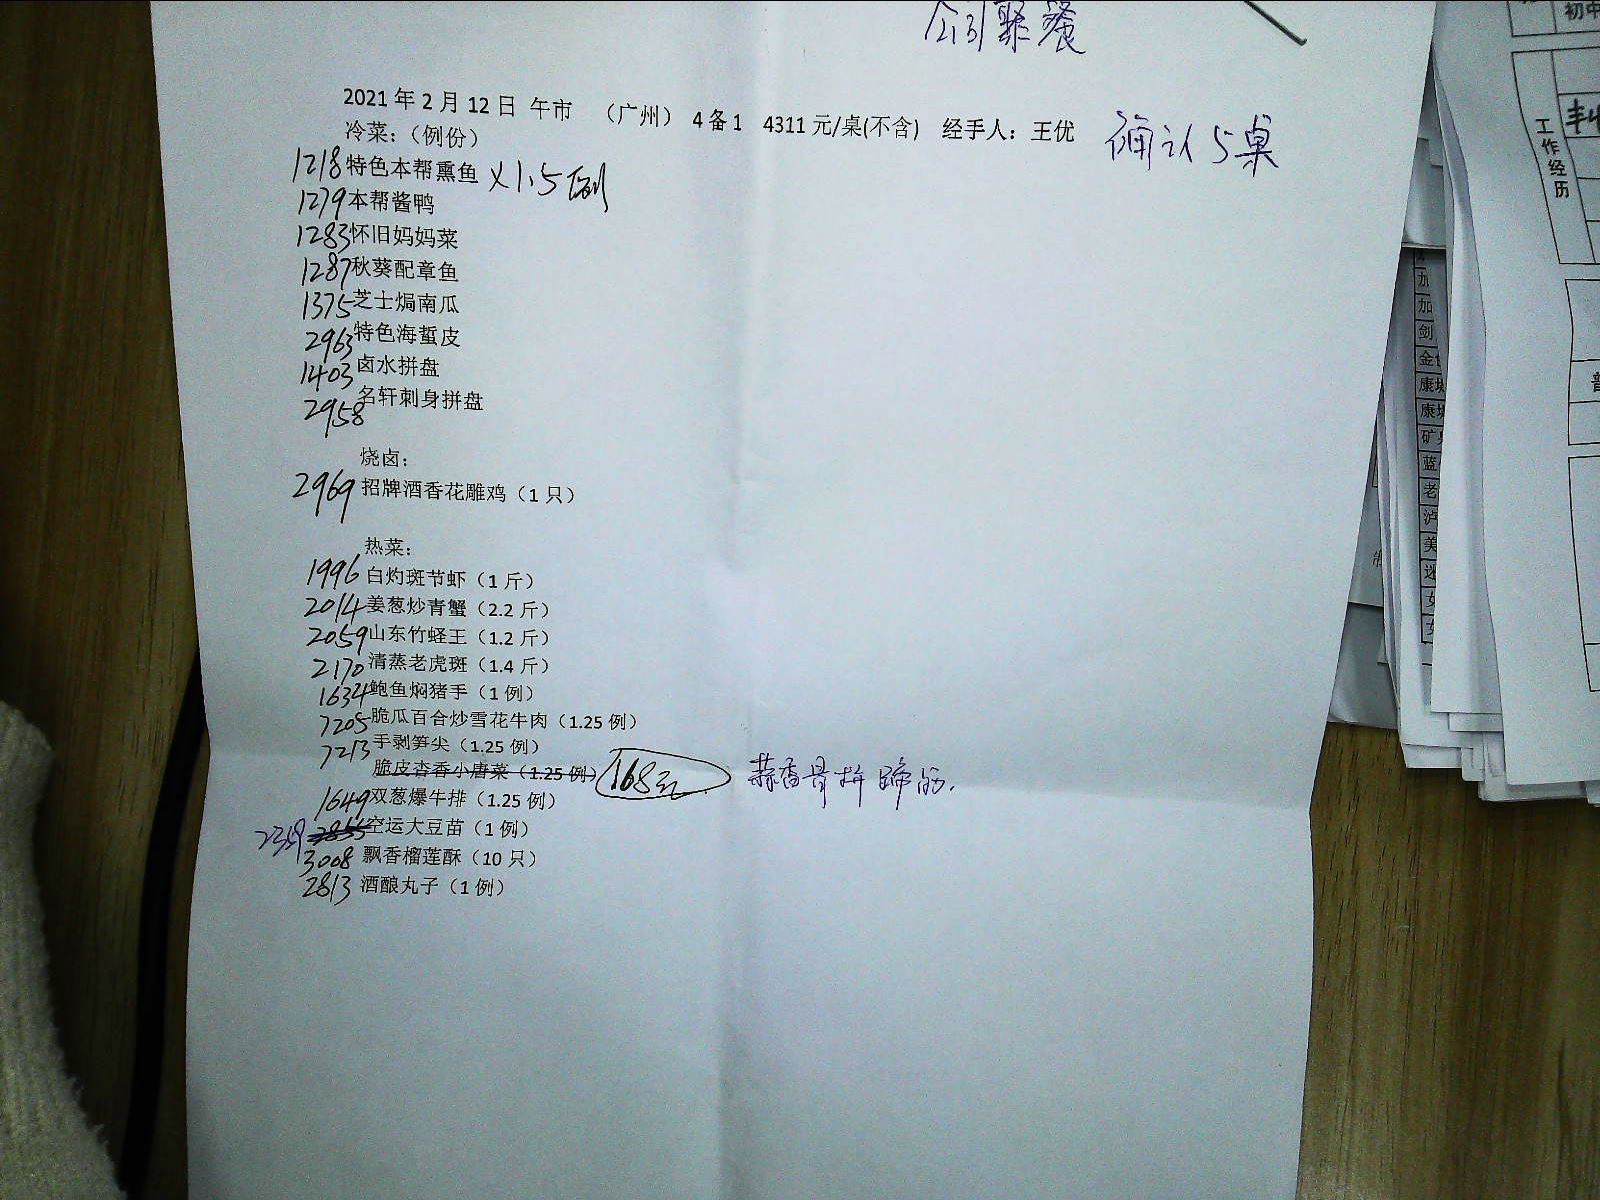 公司聚餐
2021 年 2 月 12 日 午市 （广州） 4 备 1 4311 元/桌(不含) 经手人：王优 确认 5 桌
冷菜：（例份）
1218 特色本帮熏鱼 x1.5例
1279 本帮酱鸭
1283 怀旧妈妈菜
1287 秋葵配章鱼
1375 芝士焗南瓜
2963 特色海蜇皮
1403 卤水拼盘
2958 名轩刺身拼盘
烧卤：
2969 招牌酒香花雕鸡（1 只）
热菜：
1996 白灼斑节虾（1 斤）
2014 姜葱炒青蟹（2.2 斤）
2059 山东竹蛏王（1.2 斤）
2170 清蒸老虎斑（1.4 斤）
1634 鲍鱼焖猪手（1 例）
7205 脆瓜百合炒雪花牛肉（1.25 例）
7213 手剥笋尖（1.25 例）
脆皮杏香小唐菜（1.25 例） 168元 蒜香骨拼蹄筋.
1649 双葱爆牛排（1.25 例）
2359 2855 空运大豆苗（1 例）
3008 飘香榴莲酥（10 只）
2813 酒酿丸子（1 例）
初中
工作经历
加
加
剑
康城
康城
蓝
老
泸
美
迷